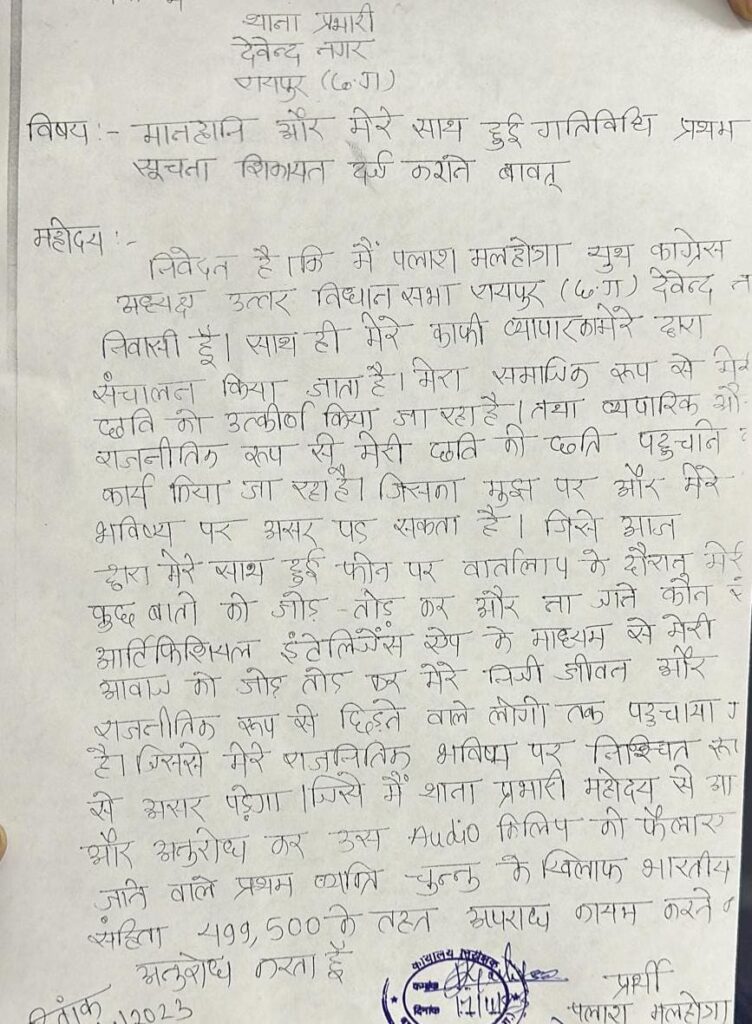 थाना प्रभारी
देवेन्द नगर
रायपुर (छ.ग)
विषय :- मानहानि और मेरे साथ हुई गतिविधि प्रथम
सूचना शिकायत दर्ज कराने बावत्
महोदय :-
निवेदन है। कि मैं पलाश मलहोत्रा युथ कांग्रेस
अध्यक्ष उत्तर विधानसभा रायपुर (छ.ग) देवेन्द न
निवासी हूँ। साथ ही मेरे काफी व्यापार का मेरे द्वारा
संचालन किया जाता है। मेरा समाजिक रूप से मेर
छति को उत्कीर्ण किया जा रहा है। तथा व्यपारिक औ
राजनीतिक रूप से मेरी छति को छति पहुचाने
कार्य किया जा रहा है। जिसका मुझ पर और मेरे
भविष्य पर असर पड सकता है। जिसे आज
द्वारा मेरे साथ हुई फोन पर वार्तालाप के दौरान मेरे
कुछ बातो को जोड़-तोड़ कर और ना जाने कौन
आर्टिफिशियल इंटेलिजेंस ऐप के माध्यम से मेरी
आवाज को जोड़ तोड़ कर मेरे निजी जीवन और
राजनीतिक रूप से छिड़ते वाले लोगो तक पहुचाया ग
है। जिससे मेरे राजनितिक भविष्य पर निश्चित रू
से असर पड़ेगा। जिसे मैं थाना प्रभारी महोदय से आ
और अनुरोध कर उस Audio क्लिप को फैलाए
जाने वाले प्रथम व्यक्ति चुन्नु के खिलाफ भारतीय
संहिता 499,500 के तहत अपराध कायम करने
अनुरोध करता हूँ
कार्यालय
क्रमांक
दिनांक 17/11/
प्रार्थी
पलाश मलहोत्रा
दिनांक
/2023